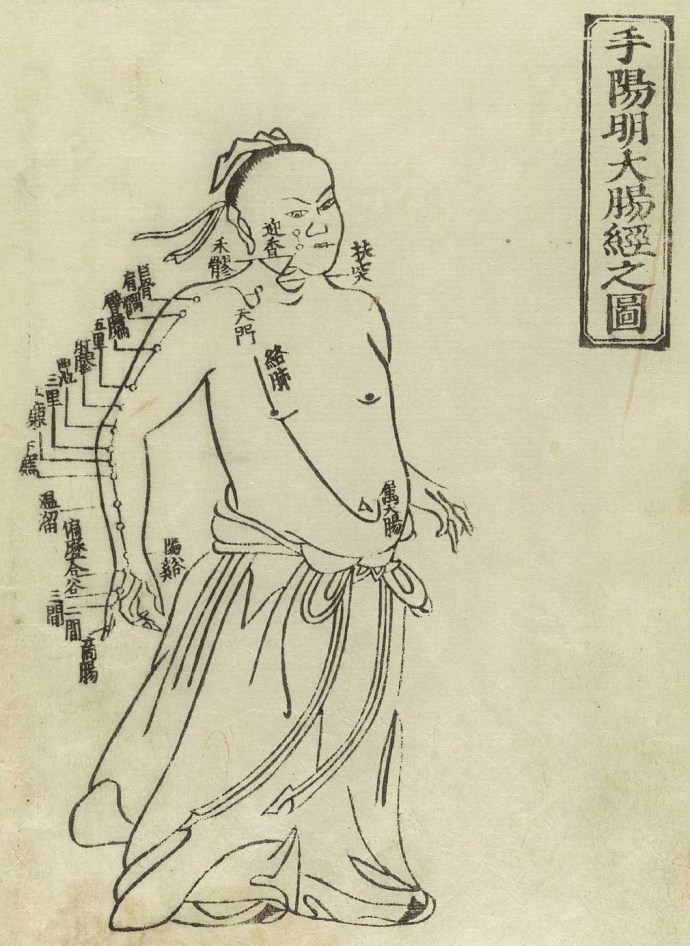 手陽明大腸經之圖
迎香
禾髎
扶突
天門
巨骨
肩髃
臂臑
五里
肘髎
三里
絡肺
屬大腸
溫留
偏歷
合谷
陽谿
三間
二間
商陽